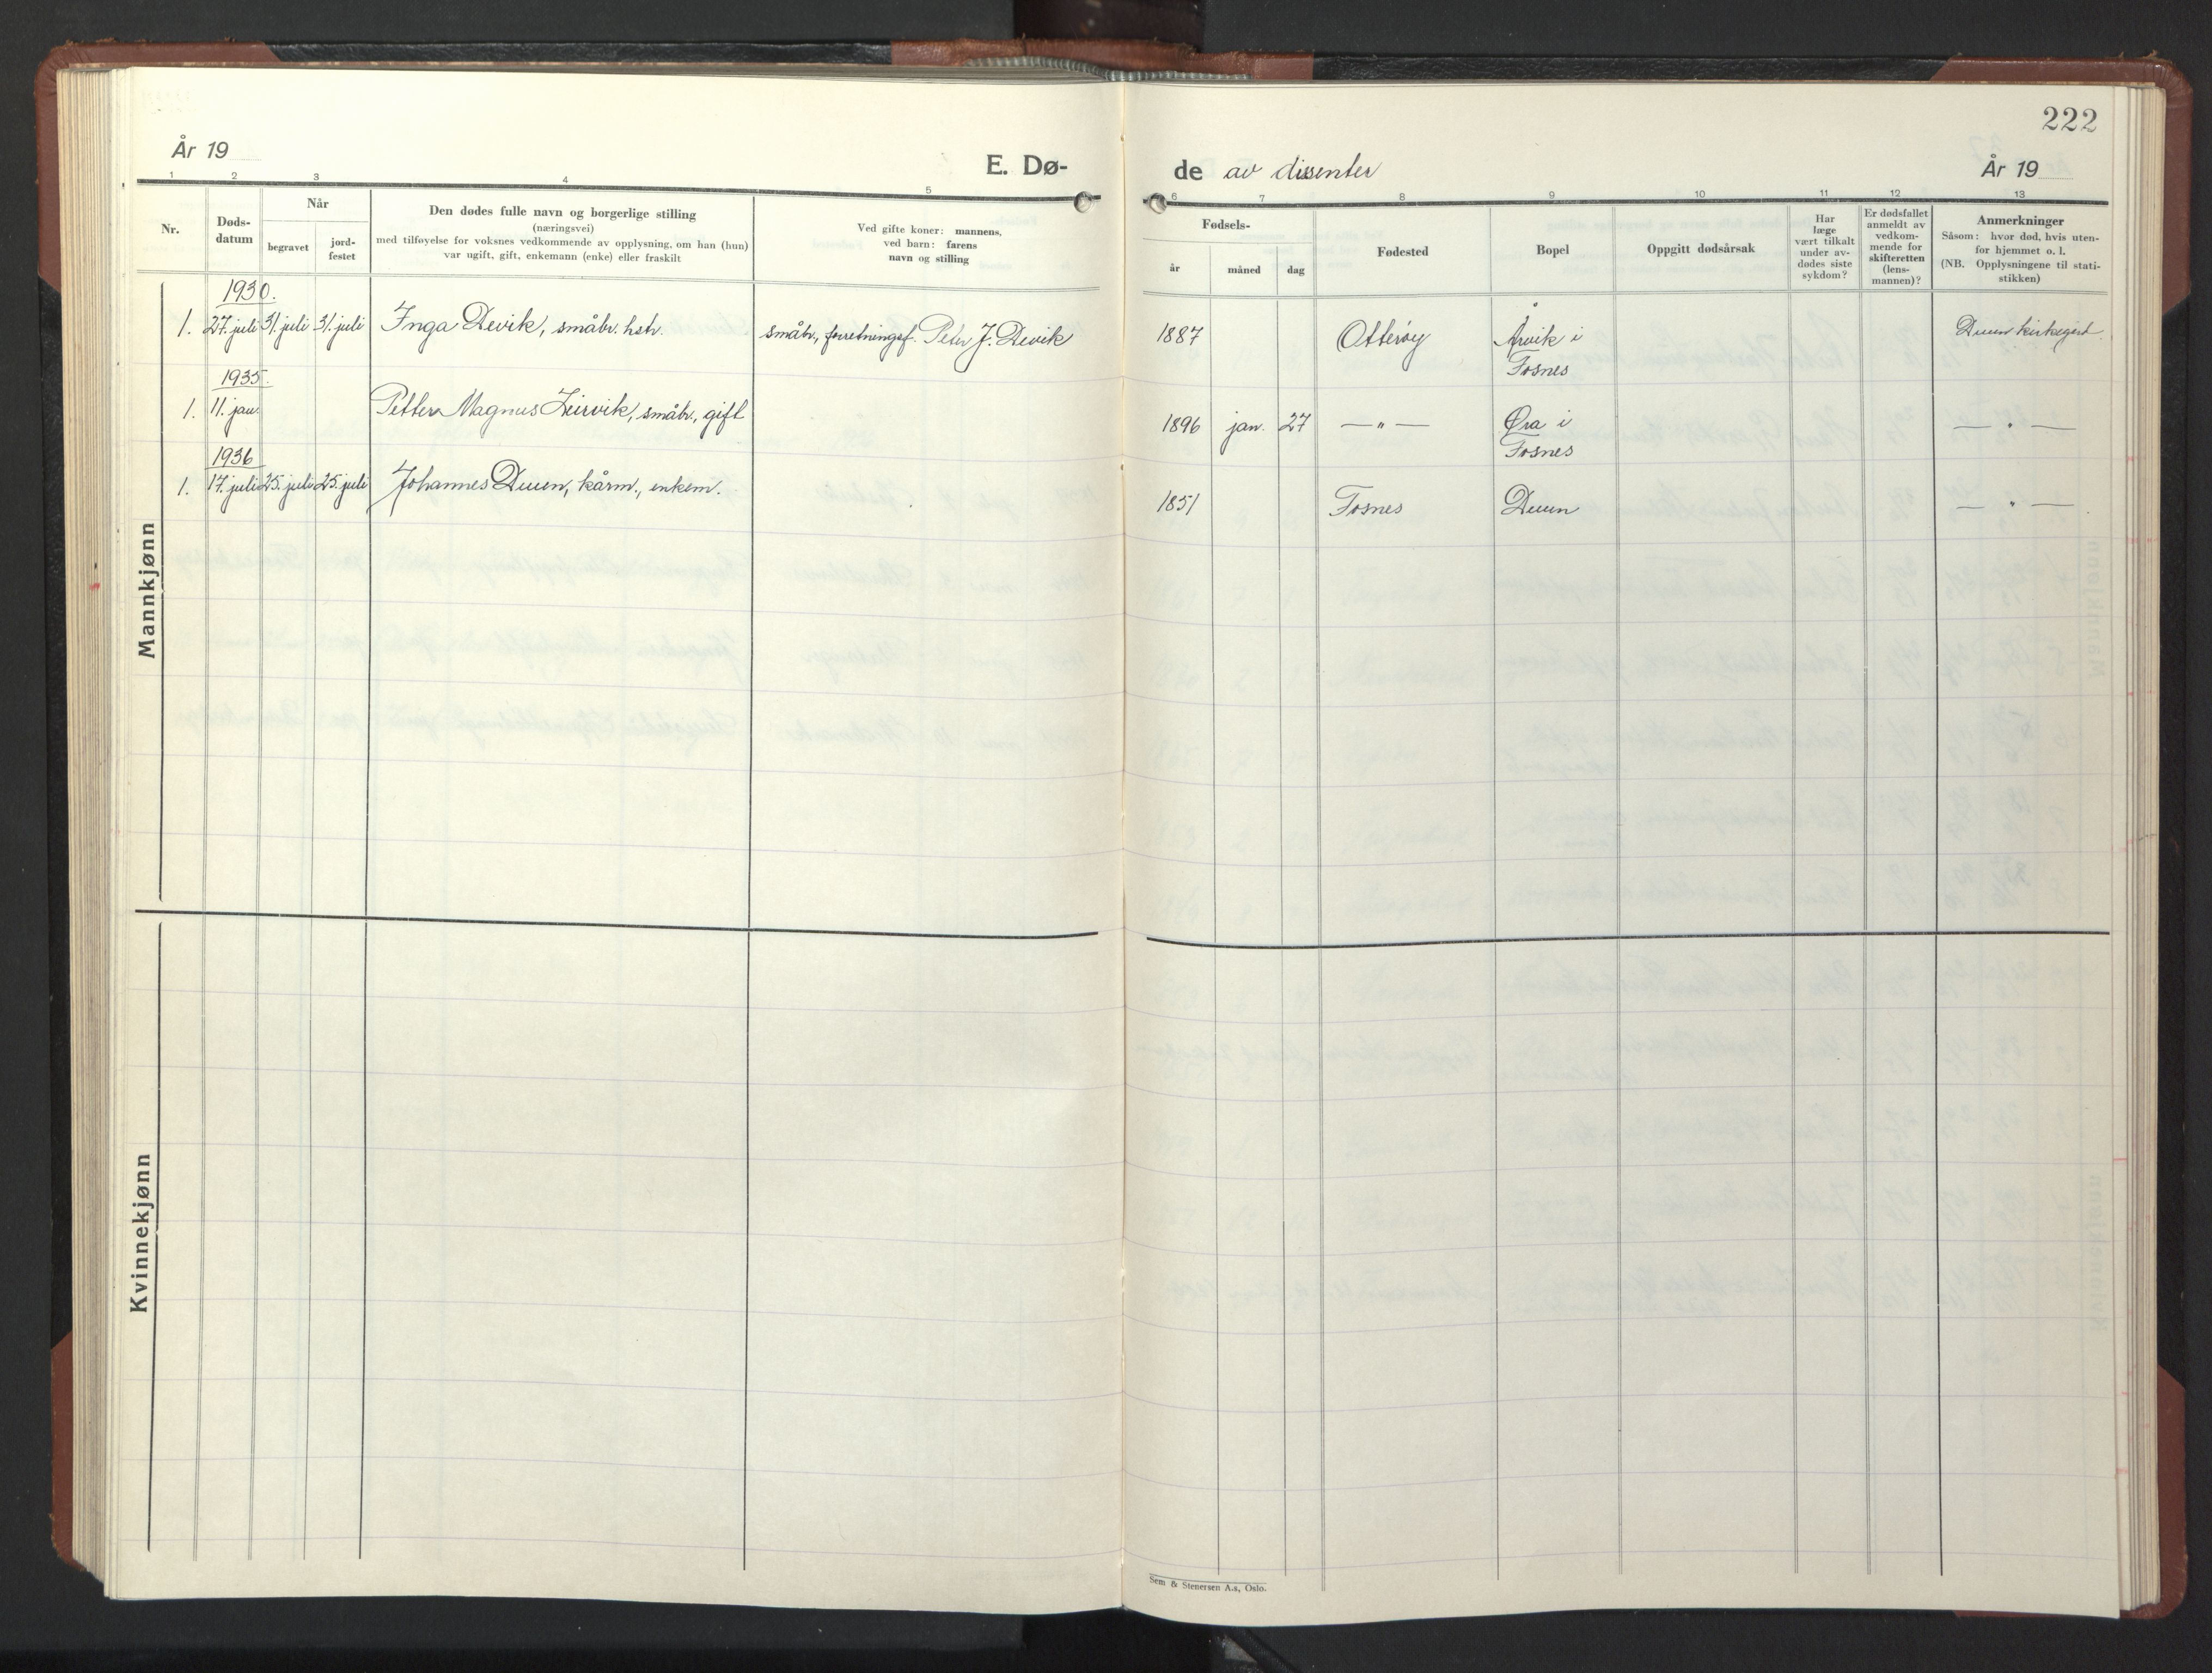 222
År 19
E. Dø-
de av dissenter
År 19
1 2 3 4 5 6 7 8 9 10 11 12 13
Nr.
Døds-
datum
Når
begravet
jord-
festet
Den dødes fulle navn og borgerlige stilling
(næringsvei)
med tilføyelse for voksnes vedkommende av opplysning, om han (hun)
var ugift, gift, enkemann (enke) eller fraskilt
Ved gifte koner: mannens,
ved barn: farens
navn og stilling
Fødsels-
år
måned
dag
Fødested
Bopel
Oppgitt dødsårsak
Har
læge
vært tilkalt
under av-
dødes siste
sykdom?
Er dødsfallet
anmeldt av
vedkom-
mende for
skifteretten
(lens-
mannen)?
Anmerkninger
Såsom: hvor død, hvis uten-
for hjemmet o. l.
(NB. Opplysningene til stati-
stikken)
Mannkjønn
1930.
1. 27. juli 31. juli 31. juli Inga Devik, småbr. hstr. småbr., forretningsf. Peter J. Devik 1887 Otterøy Årvik i
Fosnes
Duun kirkegård.
1935.
1. 11. jan. Petter Magnus Zeirvik, småbr., gift 1896 jan. 27 — " — Øra i
Fosnes
— " —
1936
1. 17. juli 25. juli 25. juli Johannes Duun, kårm., enkem. 1851 Fosnes Duun — " —
Kvinnekjønn
Sem & Stenersen A.s, Oslo.